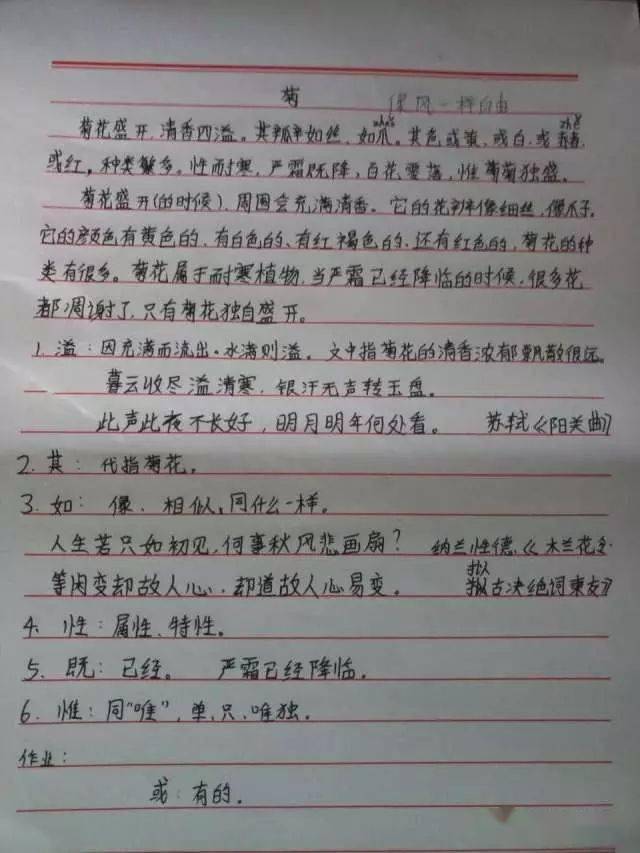 菊 像风一样自由
菊花盛开，清香四溢。其瓣如丝，如爪。其色或黄、或白、或赭、
或红，种类繁多。性而寒，严霜既降，百花零落，惟菊菊独盛。
菊花盛开(的时候)，周围会充满清香。它的花瓣像细丝，像爪子。
它的颜色有黄色的、有白色的、有红褐色的、还有红色的，菊花的种
类有很多。菊花属于耐寒植物，当严霜已经降临的时候，很多花
都凋谢了，只有菊花独自盛开。
1. 溢：因充满而流出。水满则溢。文中指菊花的清香浓郁飘散很远。
暮云收尽溢清寒，银汗无声转玉盘。
此声此夜不长好，明月明年何处看。 苏轼《阳关曲》
2. 其：代指菊花。
3. 如：像、相似，同什么一样。
人生若只如初见，何事秋风悲画扇？ 纳兰性德《木兰花令·
等闲变却故人心，却道故人心易变。 拟古决绝词柬友》
4. 性：属性、特性。
5. 既：已经。 严霜已经降临。
6. 惟：同“唯”，单、只、唯独。
作业：
或：有的。